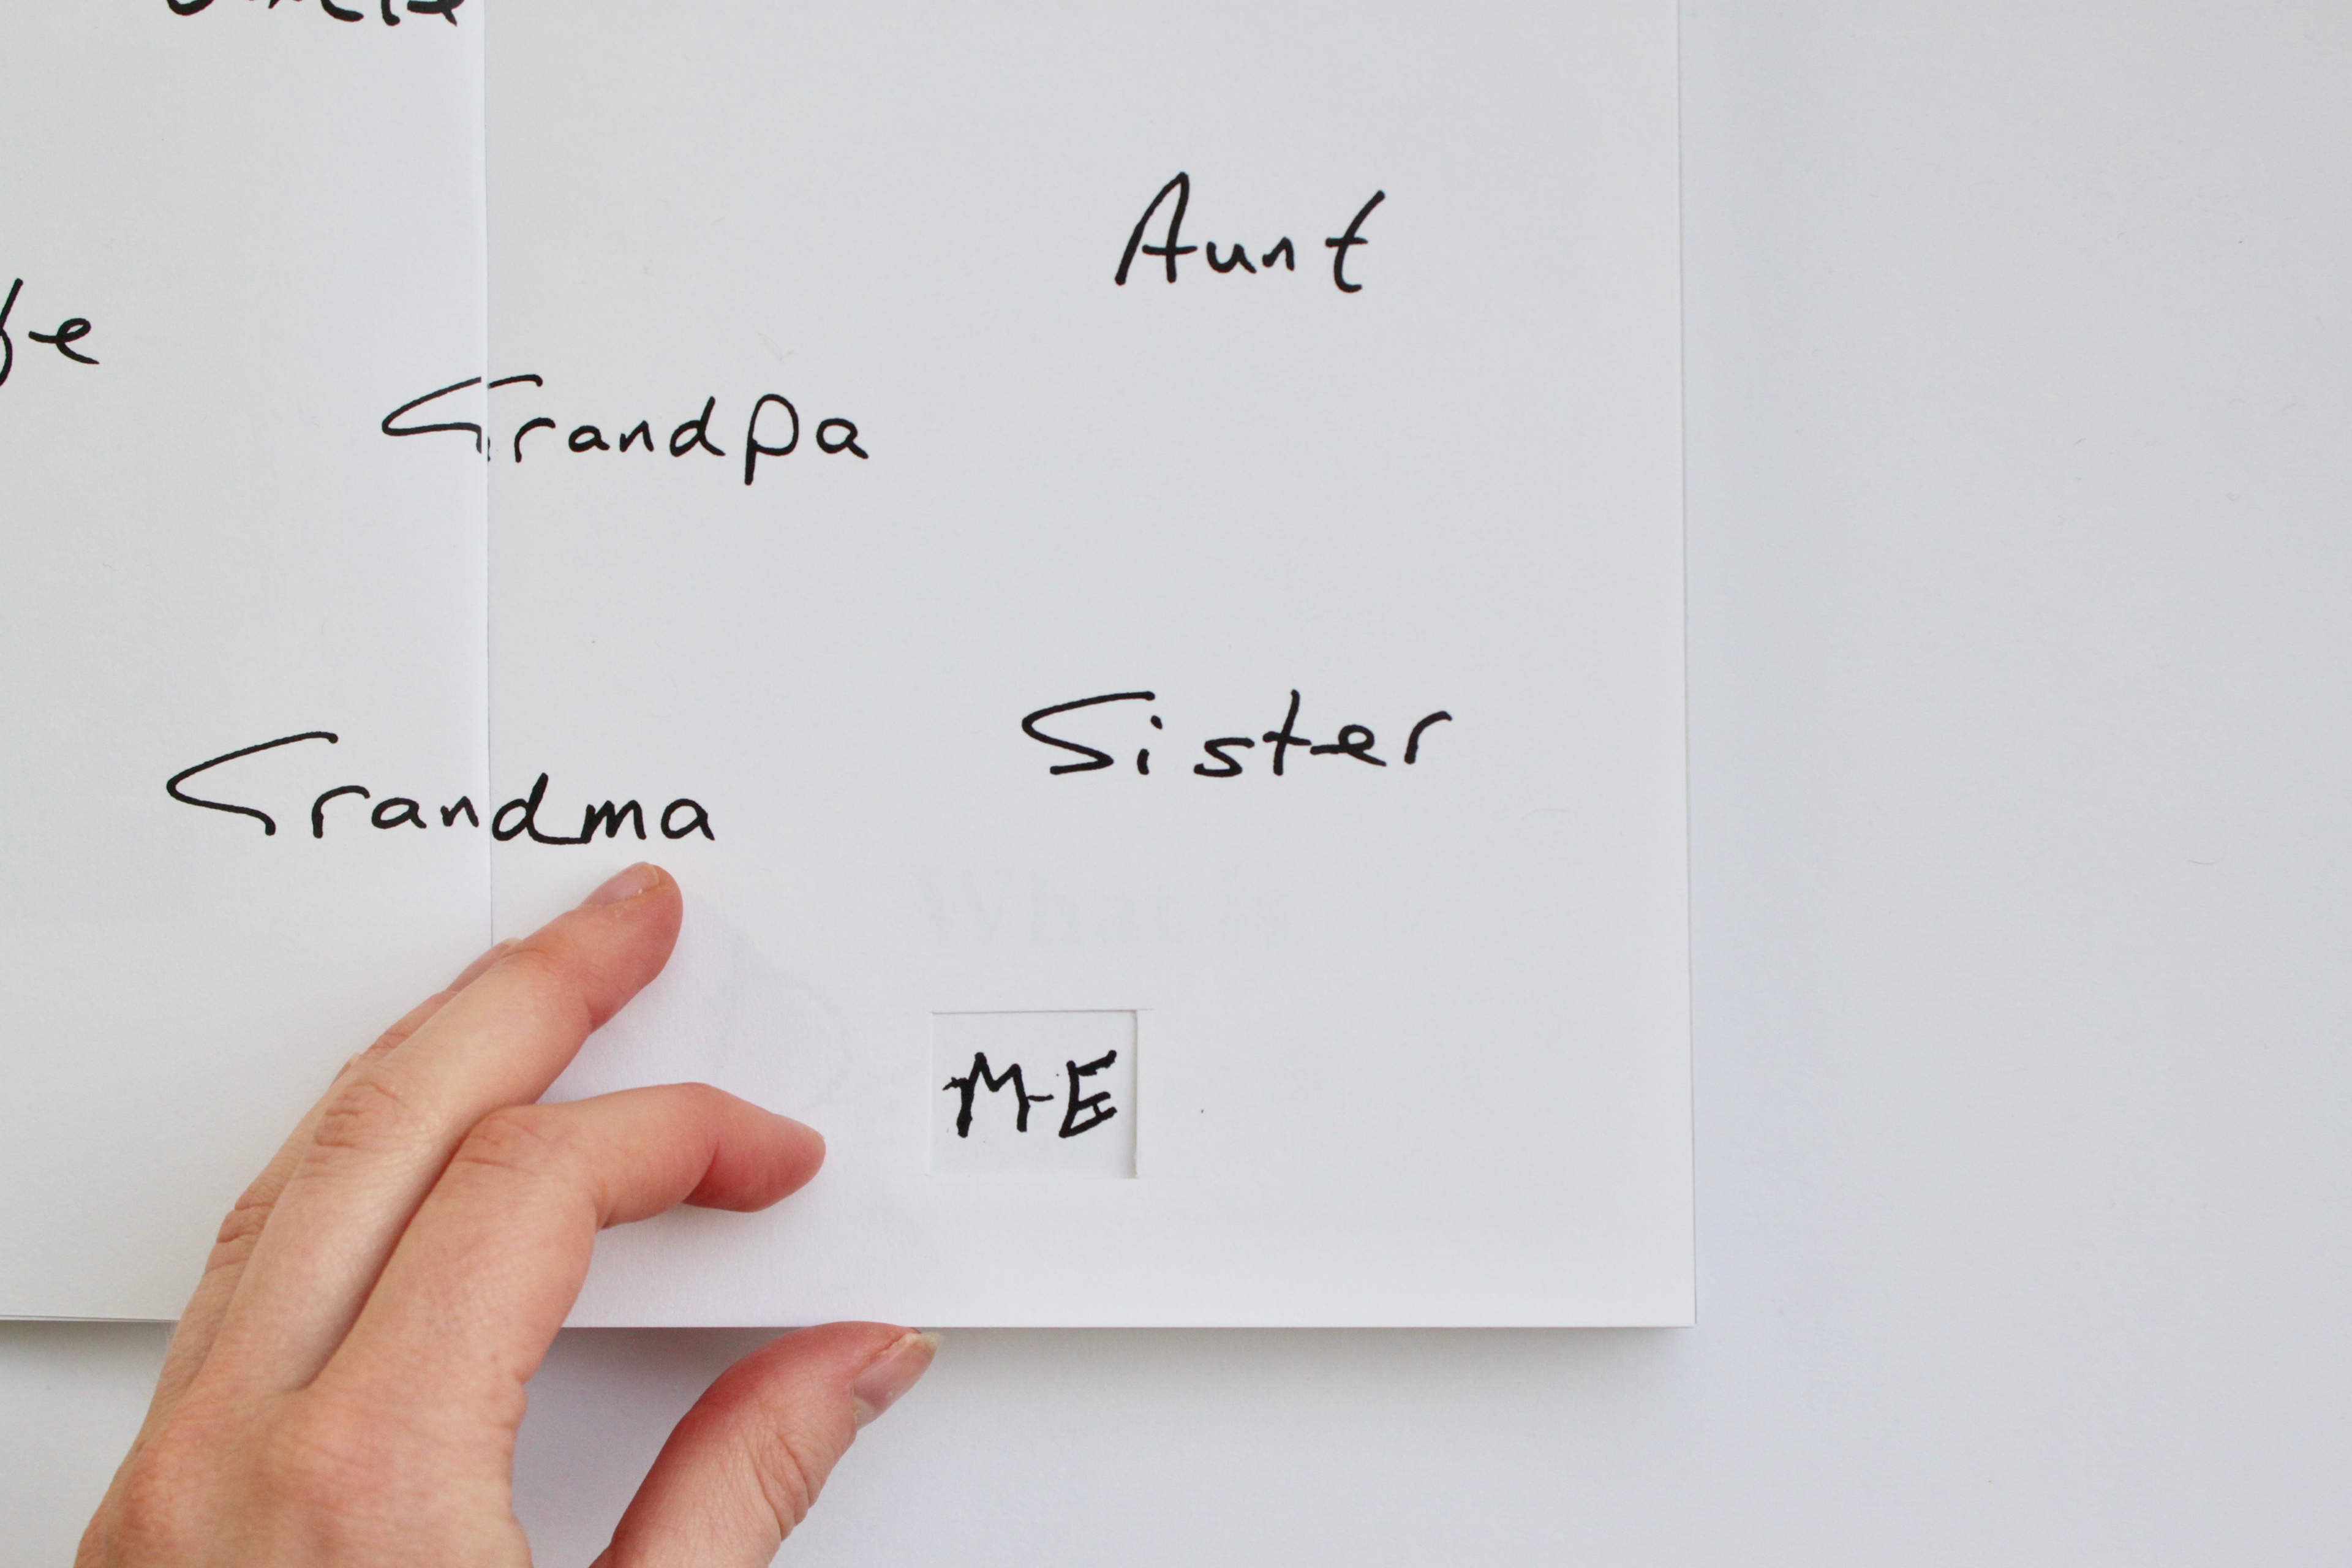 Aunt
Grandpa
Sister
Grandma
What is
ME